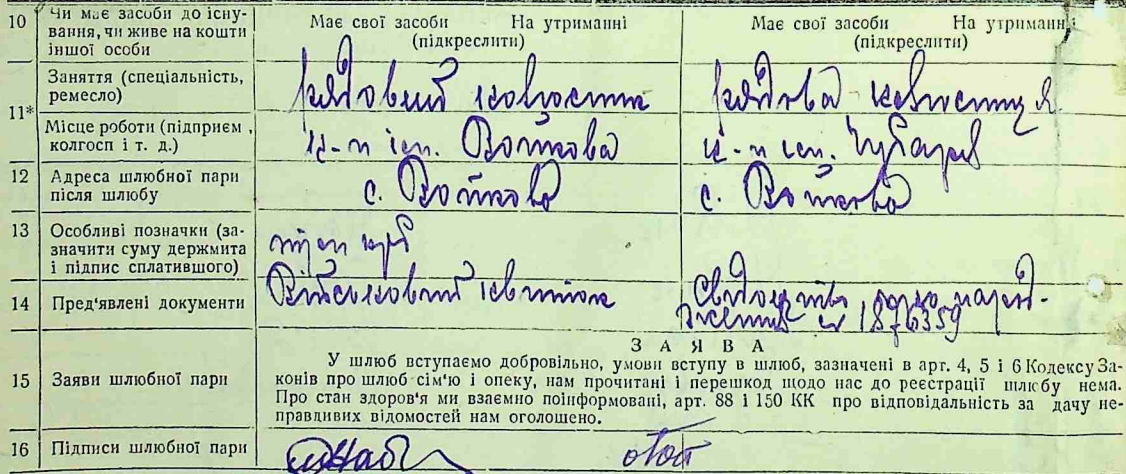 10 Чи має засоби до існу-
вання, чи живе на кошти
іншої особи
Має свої засоби На утриманні
(підкреслити)
Має свої засоби На утриманні
(підкреслити)
11* Заняття (спеціальність,
ремесло)
рядовий колгоспник
рядова колгоспниця
Місце роботи (підприєм,
колгосп і т. д.)
к-п ім. Войкова
к-п ім. Чубаря
12 Адреса шлюбної пари
після шлюбу
с. Войкова
с. Войкова
13 Особливі позначки (за-
значити суму держмита
і підпис сплатившого)
три крб
14 Пред'явлені документи
Військовий квиток
Свидоцтво народ-
ження № 1876359
15 Заяви шлюбної пари
ЗАЯВА
У шлюб вступаємо добровільно, умови вступу в шлюб, зазначені в арт. 4, 5 і 6 Кодексу За-
конів про шлюб сім'ю і опеку, нам прочитані і перешкод щодо нас до реєстрації шлюбу нема.
Про стан здоров'я ми взаємно поінформовані, арт. 88 і 150 КК про відповідальність за дачу не-
правдивих відомостей нам оголошено.
16 Підписи шлюбної пари